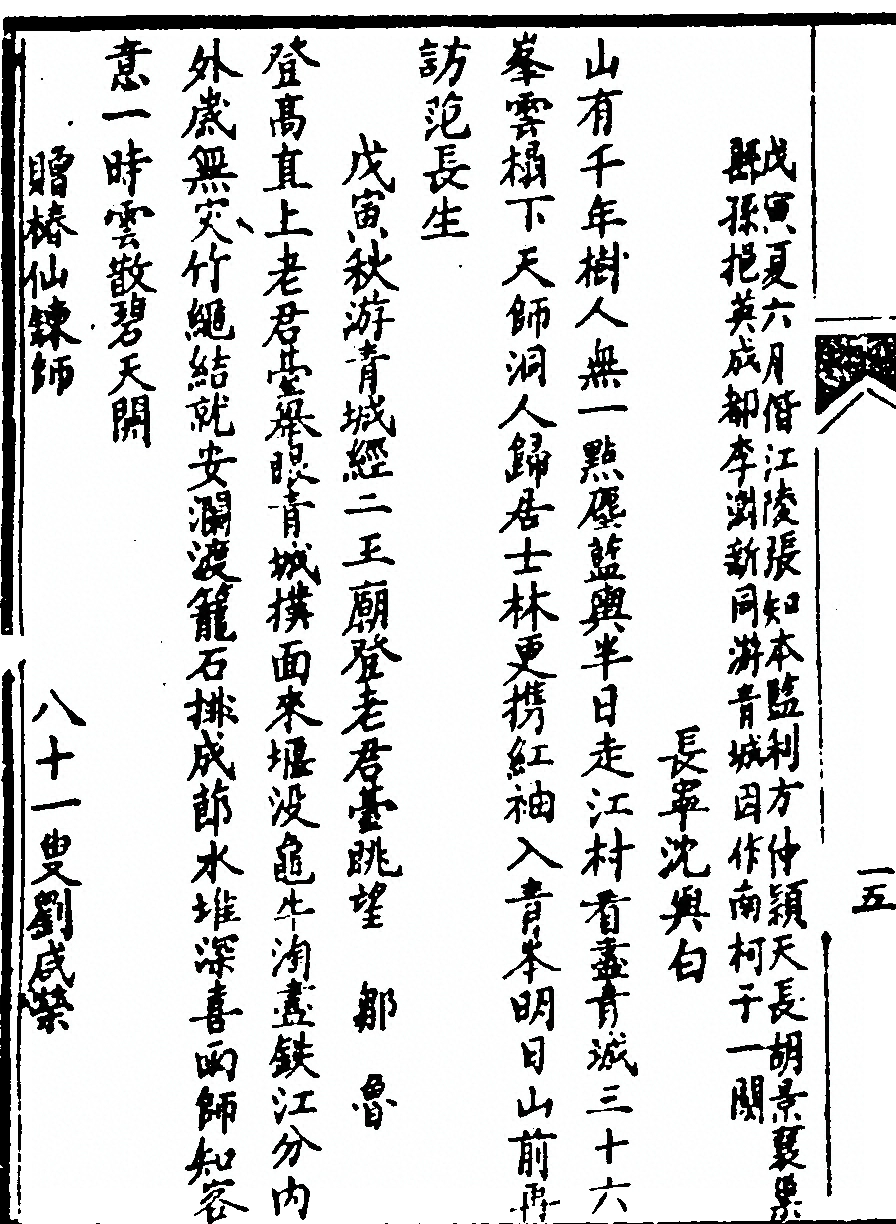 一五
戊寅夏六月偕江陵張知本監利方仲穎天長胡景襄巢
縣孫挹英成都李澍新同游青城因作南柯子一闋
長寧沈與白
山有千年樹人無一點塵藍輿半日走江村看盡青城三十六
峯雲榻下天師洞人歸居士林更携紅袖入青岑明日山前再
訪范長生
戊寅秋游青城經二王廟登老君臺眺望　鄒　魯
登高直上老君臺舉眼青城撲面來堰没龜牛淘盡鉄江分内
外歲無灾竹繩結就安瀾渡籠石排成節水堆深喜雨師知客
意一時雲散碧天開
贈椿仙鍊師　八十一叟劉咸滎